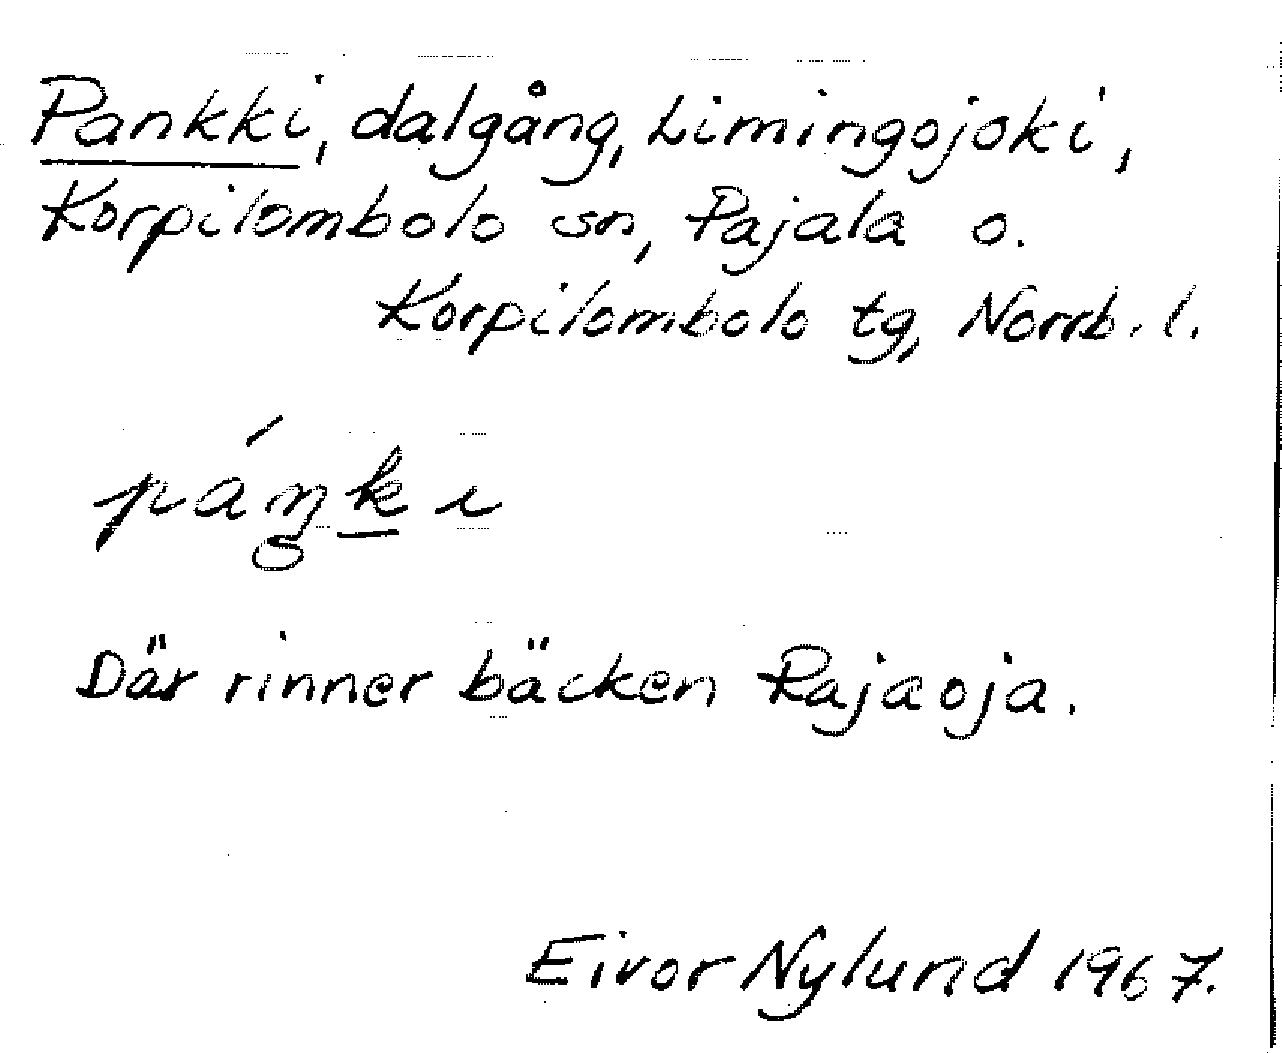 Pankki, dalgång, Limingojoki,
Korpilombolo sn, Pajala o.
Korpilombolo tg, Norrb. l.
páŋki
Där rinner bäcken Rajaoja.
Eivor Nylund 1967.